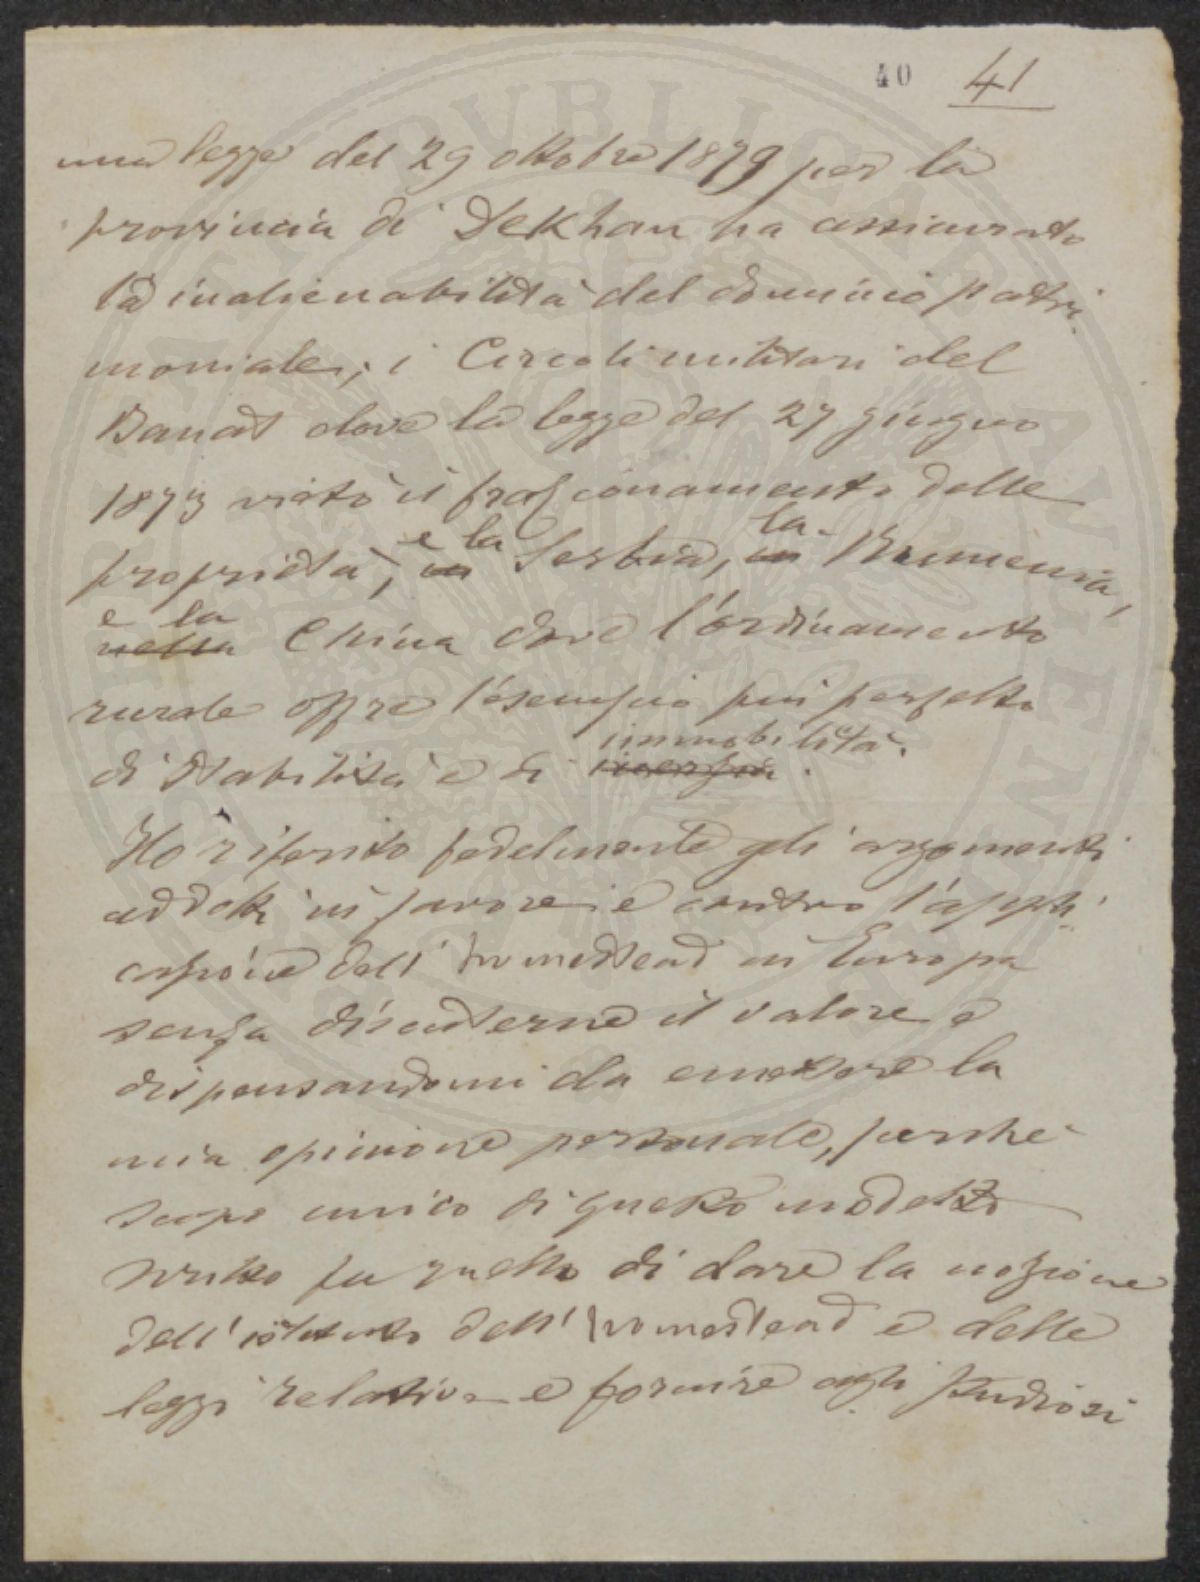 40 41
una legge del 29 ottobre 1879 per la
provincia di Dekhan ha assicurato
la inalienabilità del dominio patri
moniale; i Circoli militari del
Banat dove la legge del 27 giugno
1873 vietò il frazionamento delle
e la la
proprietà, in Serbia, in Rumenia,
e la
nella China dove l'ordinamento
rurale offre l'esempio più perfetto
immobilità.
di stabilità e di
Ho riferito fedelmente gli argomenti
addotti in favore e contro l'appli
cazione dell'homestead in Europa
senza discuterne il valore e
dispensandomi da emettere la
mia opinione personale, perché
scopo unico di questo modesto
scritto fu quello di dare la nozione
dell'istituto dell'homestead e delle
leggi relative e fornire agli studiosi